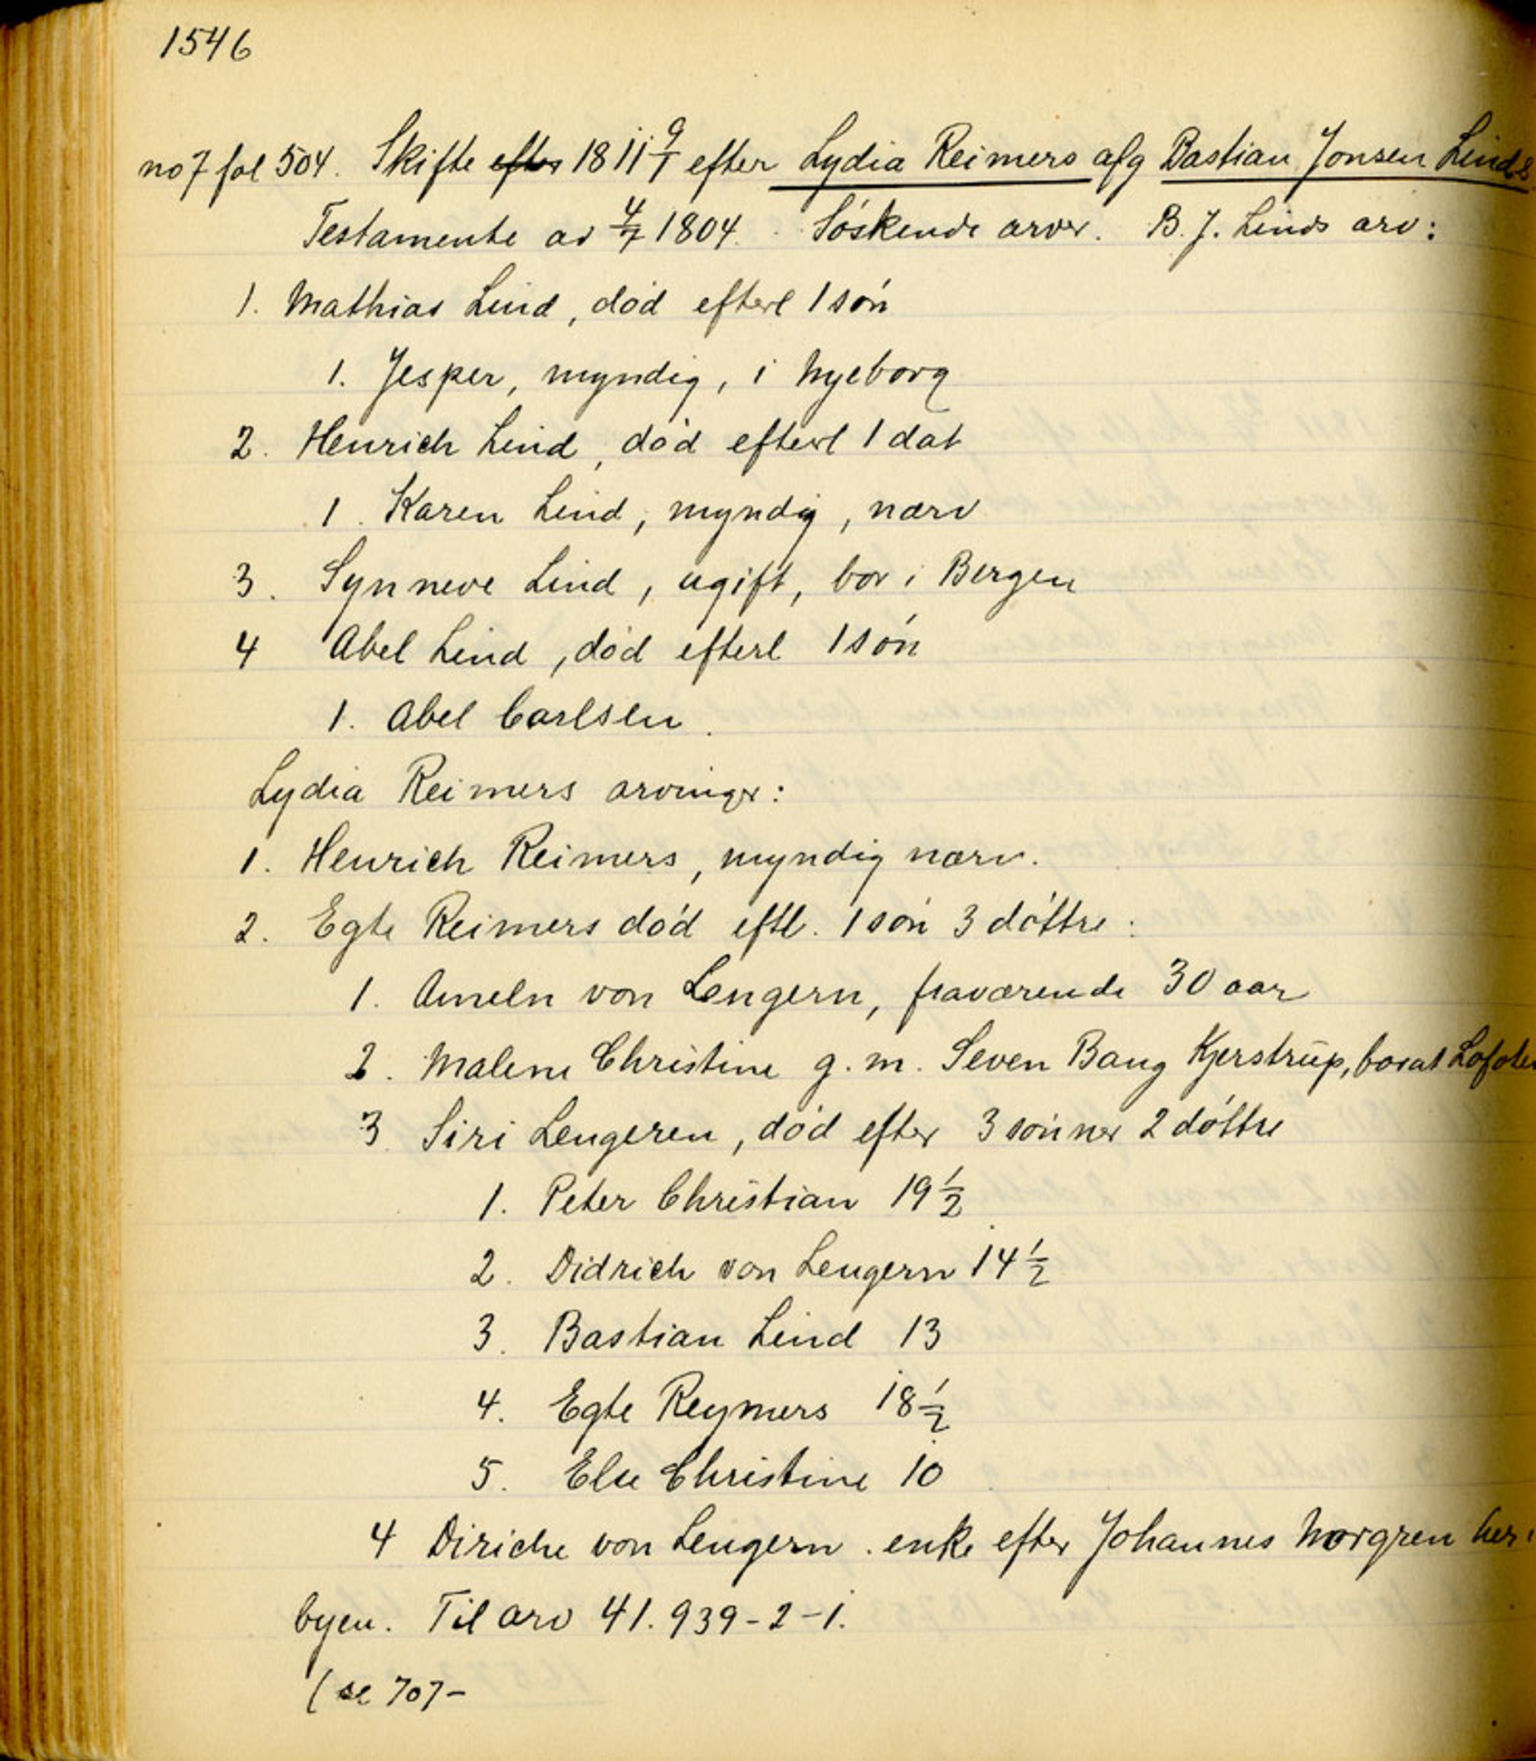 1546
no 7 fol 504. Skifte efter 1811 9/1 efter Lydia Reimers afg Bastian Jonsen Linds
Testamente av 4/7 1804. Søskende arver. B. J. Linds arv:
1. Mathias Lind, død efterl 1 søn
1. Jesper, myndig, i Nyeborg
2. Henrich Lind, død efterl 1 dat
1. Karen Lind, myndig, nærv
3. Synneve Lind, ugift, bor i Bergen
4 Abel Lind, død efterl 1 søn
1. Abel Carlsen.
Lydia Reimers arvinger:
1. Henrich Reimers, myndig nærv.
2. Egte Reimers død eftl. 1 søn 3 døttre:
1. Ameln von Lengern, fraværende 30 aar
2. Malene Christine g. m. Seven Bang Kjerstrup, bor at Lofoten
3 Siri Lengeren, død efter 3 sønner 2 døttre
1. Peter Christian 19 1/2
2. Didrich von Lengern 14 1/2
3. Bastian Lind 13
4. Egte Reymers 18 1/2
5. Else Christine 10
4 Diriche von Lengern. enke efter Johannes Norgren her i
byen. Til arv 41.939-2-1.
(se 707-